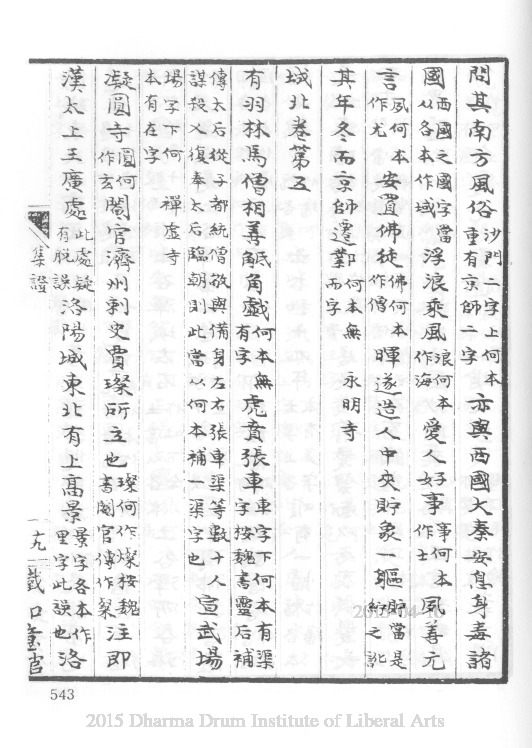 問其南方風俗沙門二字上何本重有京師二字亦與西國大秦安息身毒諸
國西國之國字當从各本作域浮浪乘風浪何本作海愛人好事事何本作士風善元
言風何本作尤安置佛徒佛何本作僧暉遂造人中央貯象一軀貯當是紵之訛
其年冬而京師遷鄴何本無而字 永明寺
城北卷第五
有羽林馬僧相善觝角戲何本無有字虎賁張車車字下何本有渠字按魏書靈后補
傳太后從子都統僧敬與備身左右張車渠等數十人
謀殺乂復奉太后臨朝則此當以何本補渠字也宣武場
場字下何本有在字禪虛寺
凝圓寺圓何作玄閹官濟州刺史賈璨所立也璨何作燦按魏書閹官傳作粲注即
漢太上王廣處此處疑有脫誤洛陽城東北有上高景景字各本作里字此誤也洛
集證
十九
543
2015 Dharma Drum Institute of Liberal Arts